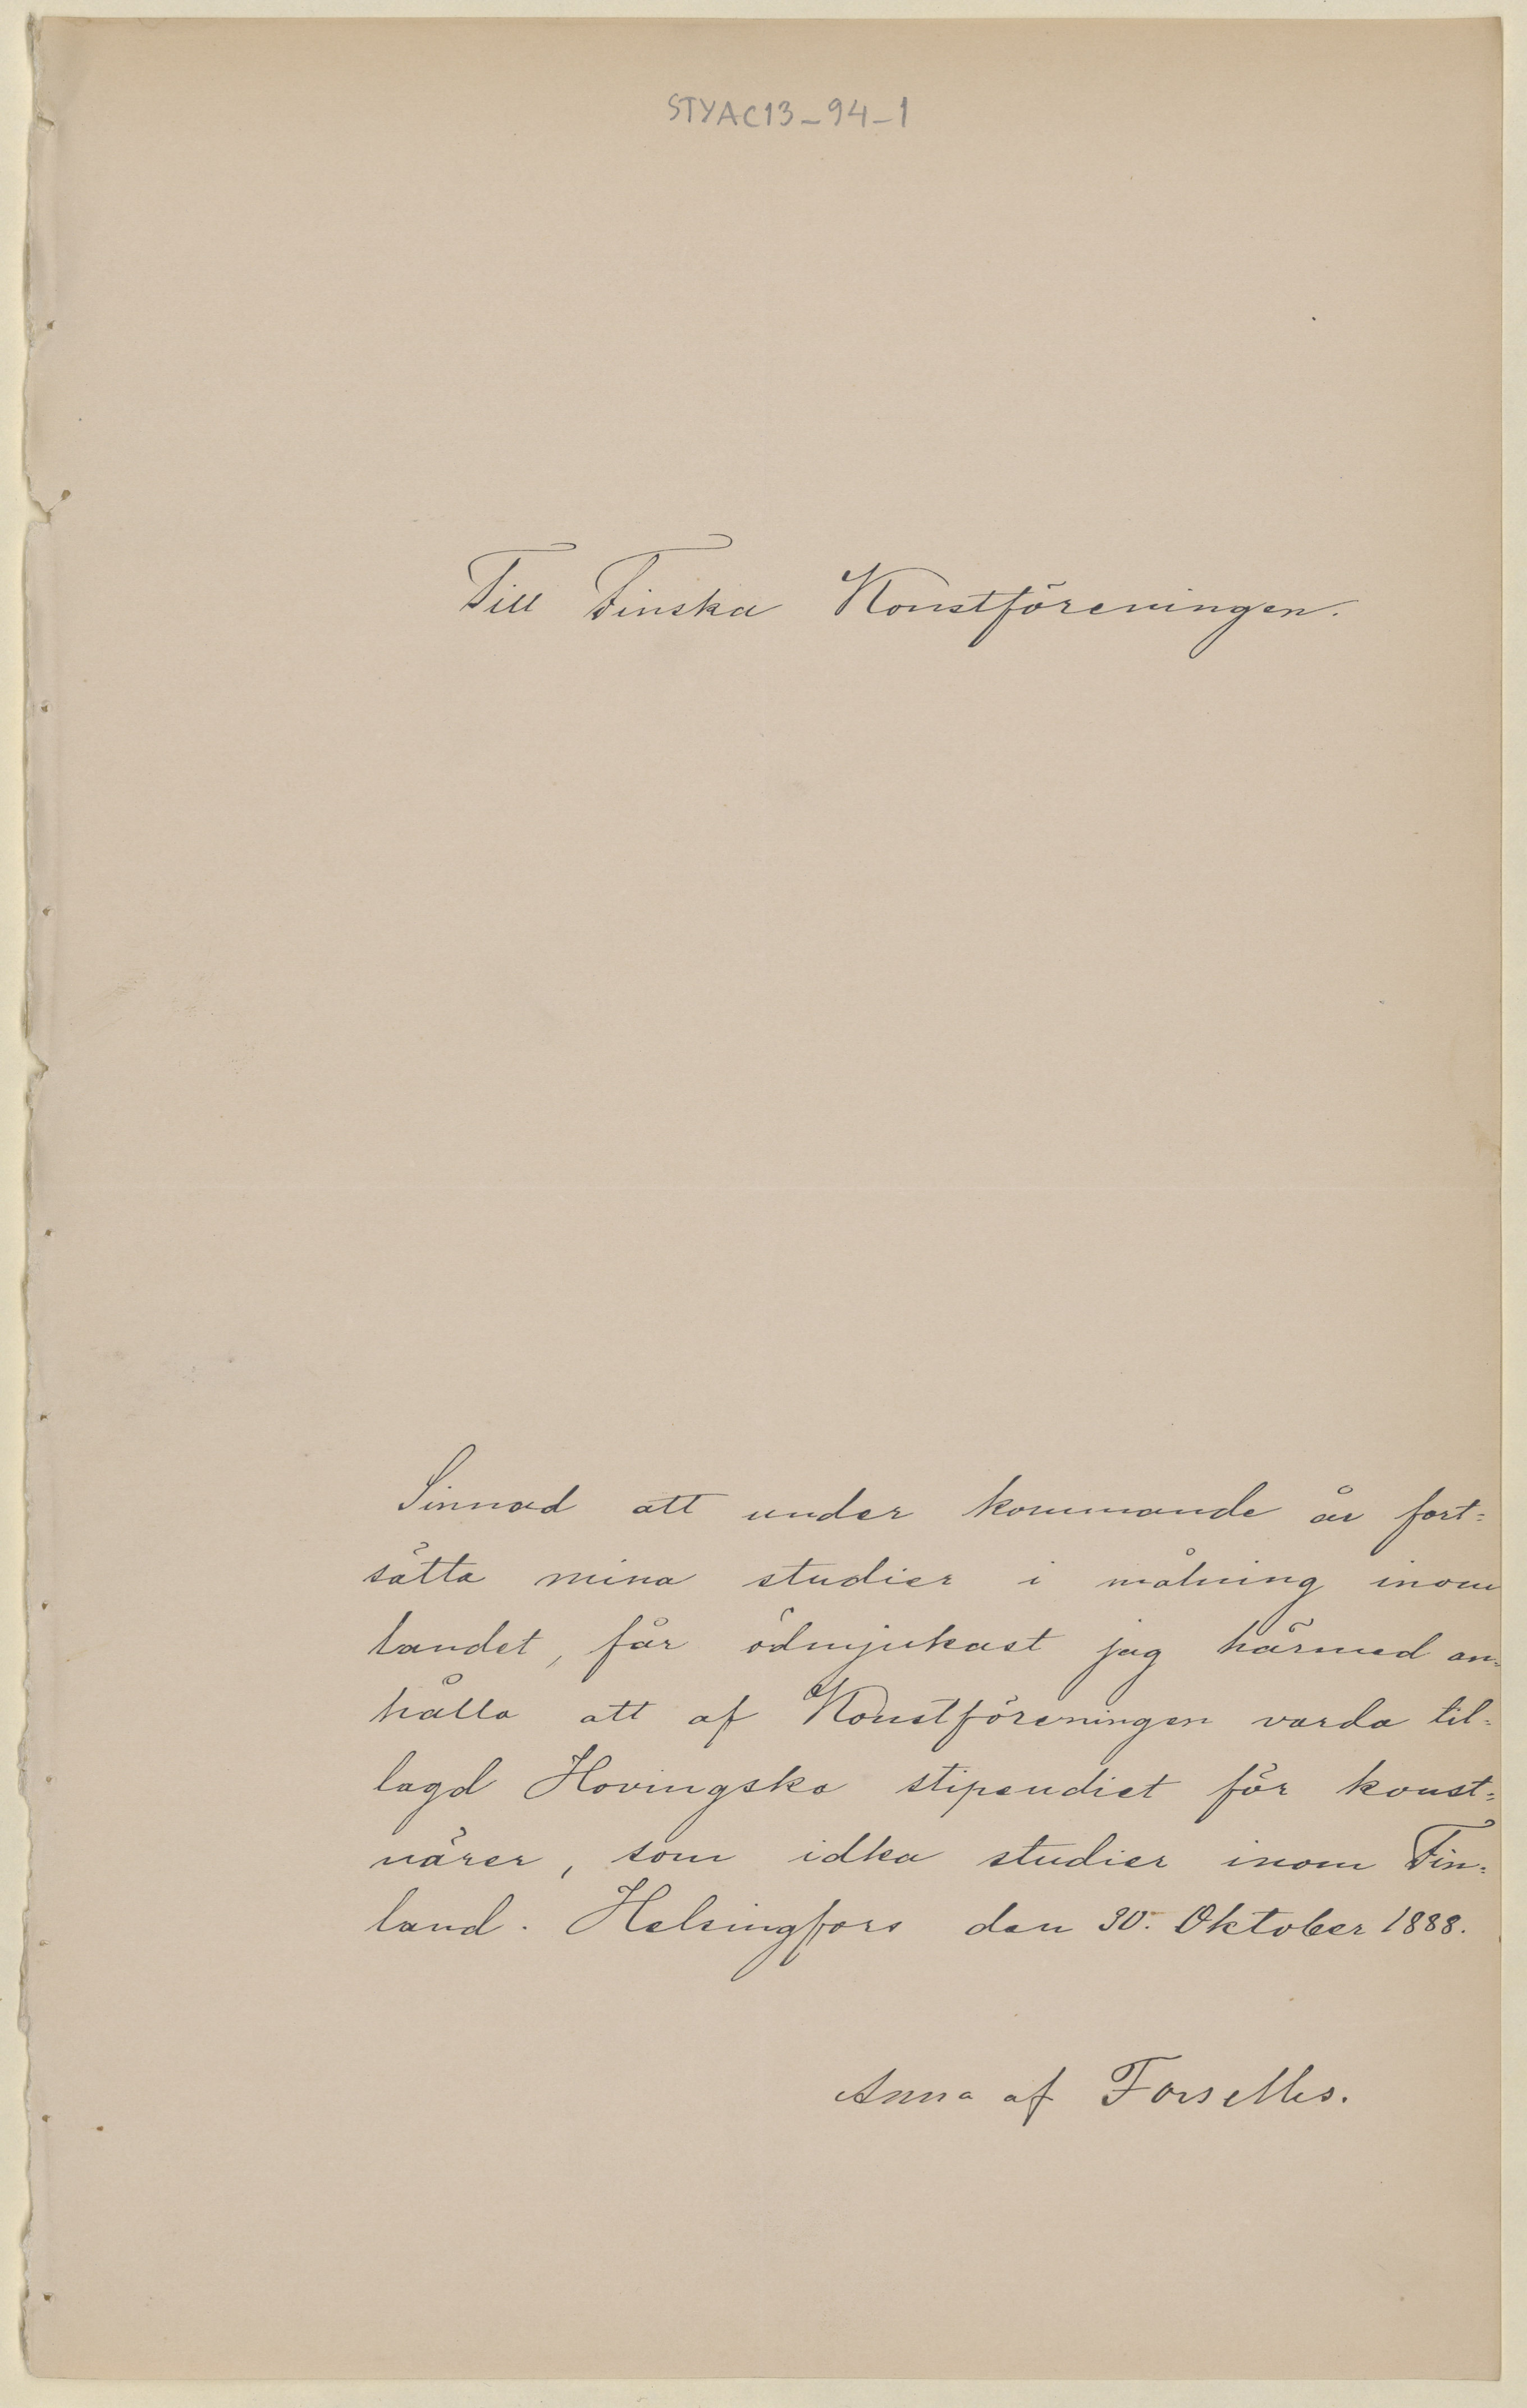 STYAC13_94_1
Till Finska Konstföreningen.
Sinnad att under kommande år fort=
sätta mina studier i målning inom
landet, får ödmjukast jag härmed an=
hålla att af Konstföreningen varda til=
lagd Hovingska stipendiet för konst=
närer, som idka studier inom Fin=
land. Helsingfors den 30. Oktober 1888.
Anna af Forselles.